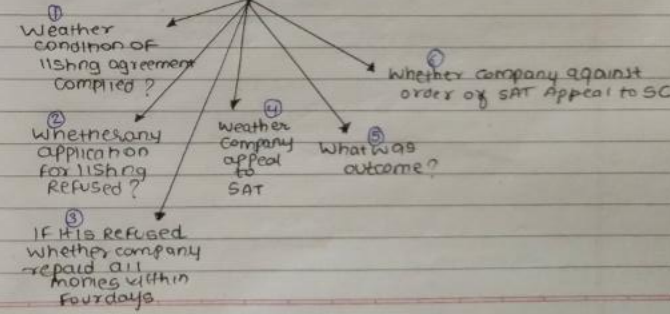 ①
Weather
condition of
listing agreement
complied ?
②
Whether any
application
for listing
Refused ?
③
IF it is Refused
Whether company
repaid all
monies within
Four days
④
Weather
Company
appeal
to
SAT
⑤
What was
outcome ?
⑥
Whether company against
order of SAT Appeal to SC